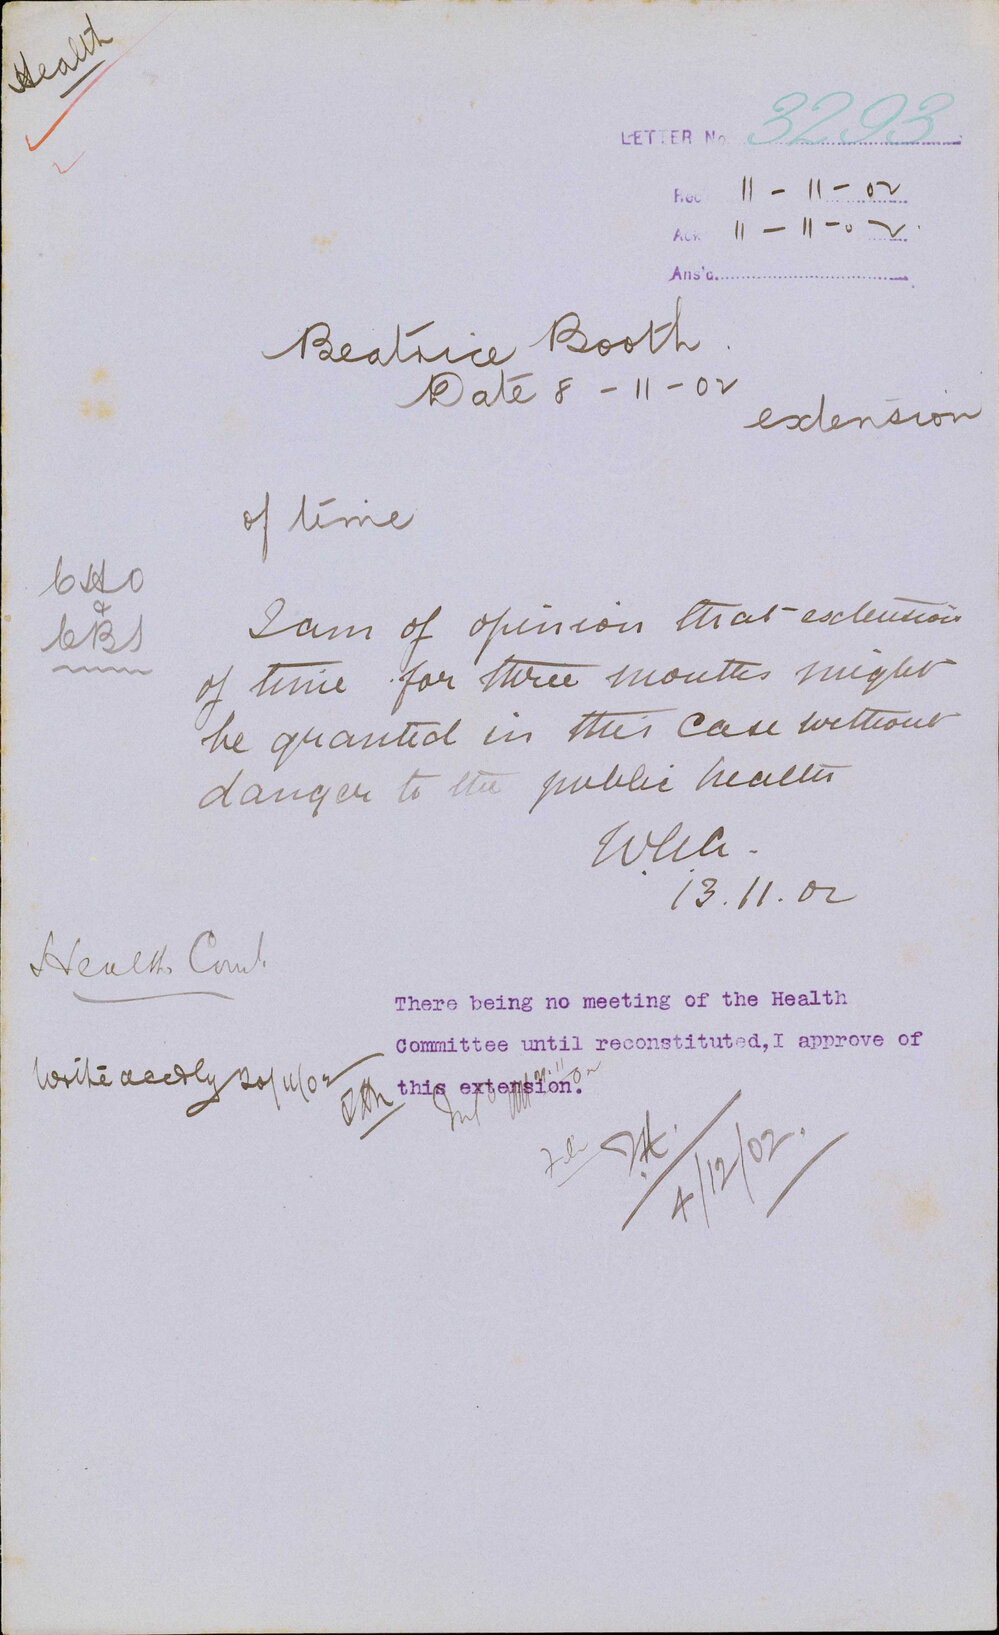 Health
LETTER No 3293
Rec 11-11-02
Ack 11-11-02
Ans'd.
Beatrice Booth.
Date 8-11-02
extension
of time
CHO
&
CBS
I am of opinion that extension
of time for three months might
be granted in this case without
danger to the public health
13.11.02
Health Comt.
There being no meeting of the Health
Committee until reconstituted, I approve of
this extension.
Write accdly 20/11/02
4/12/02.